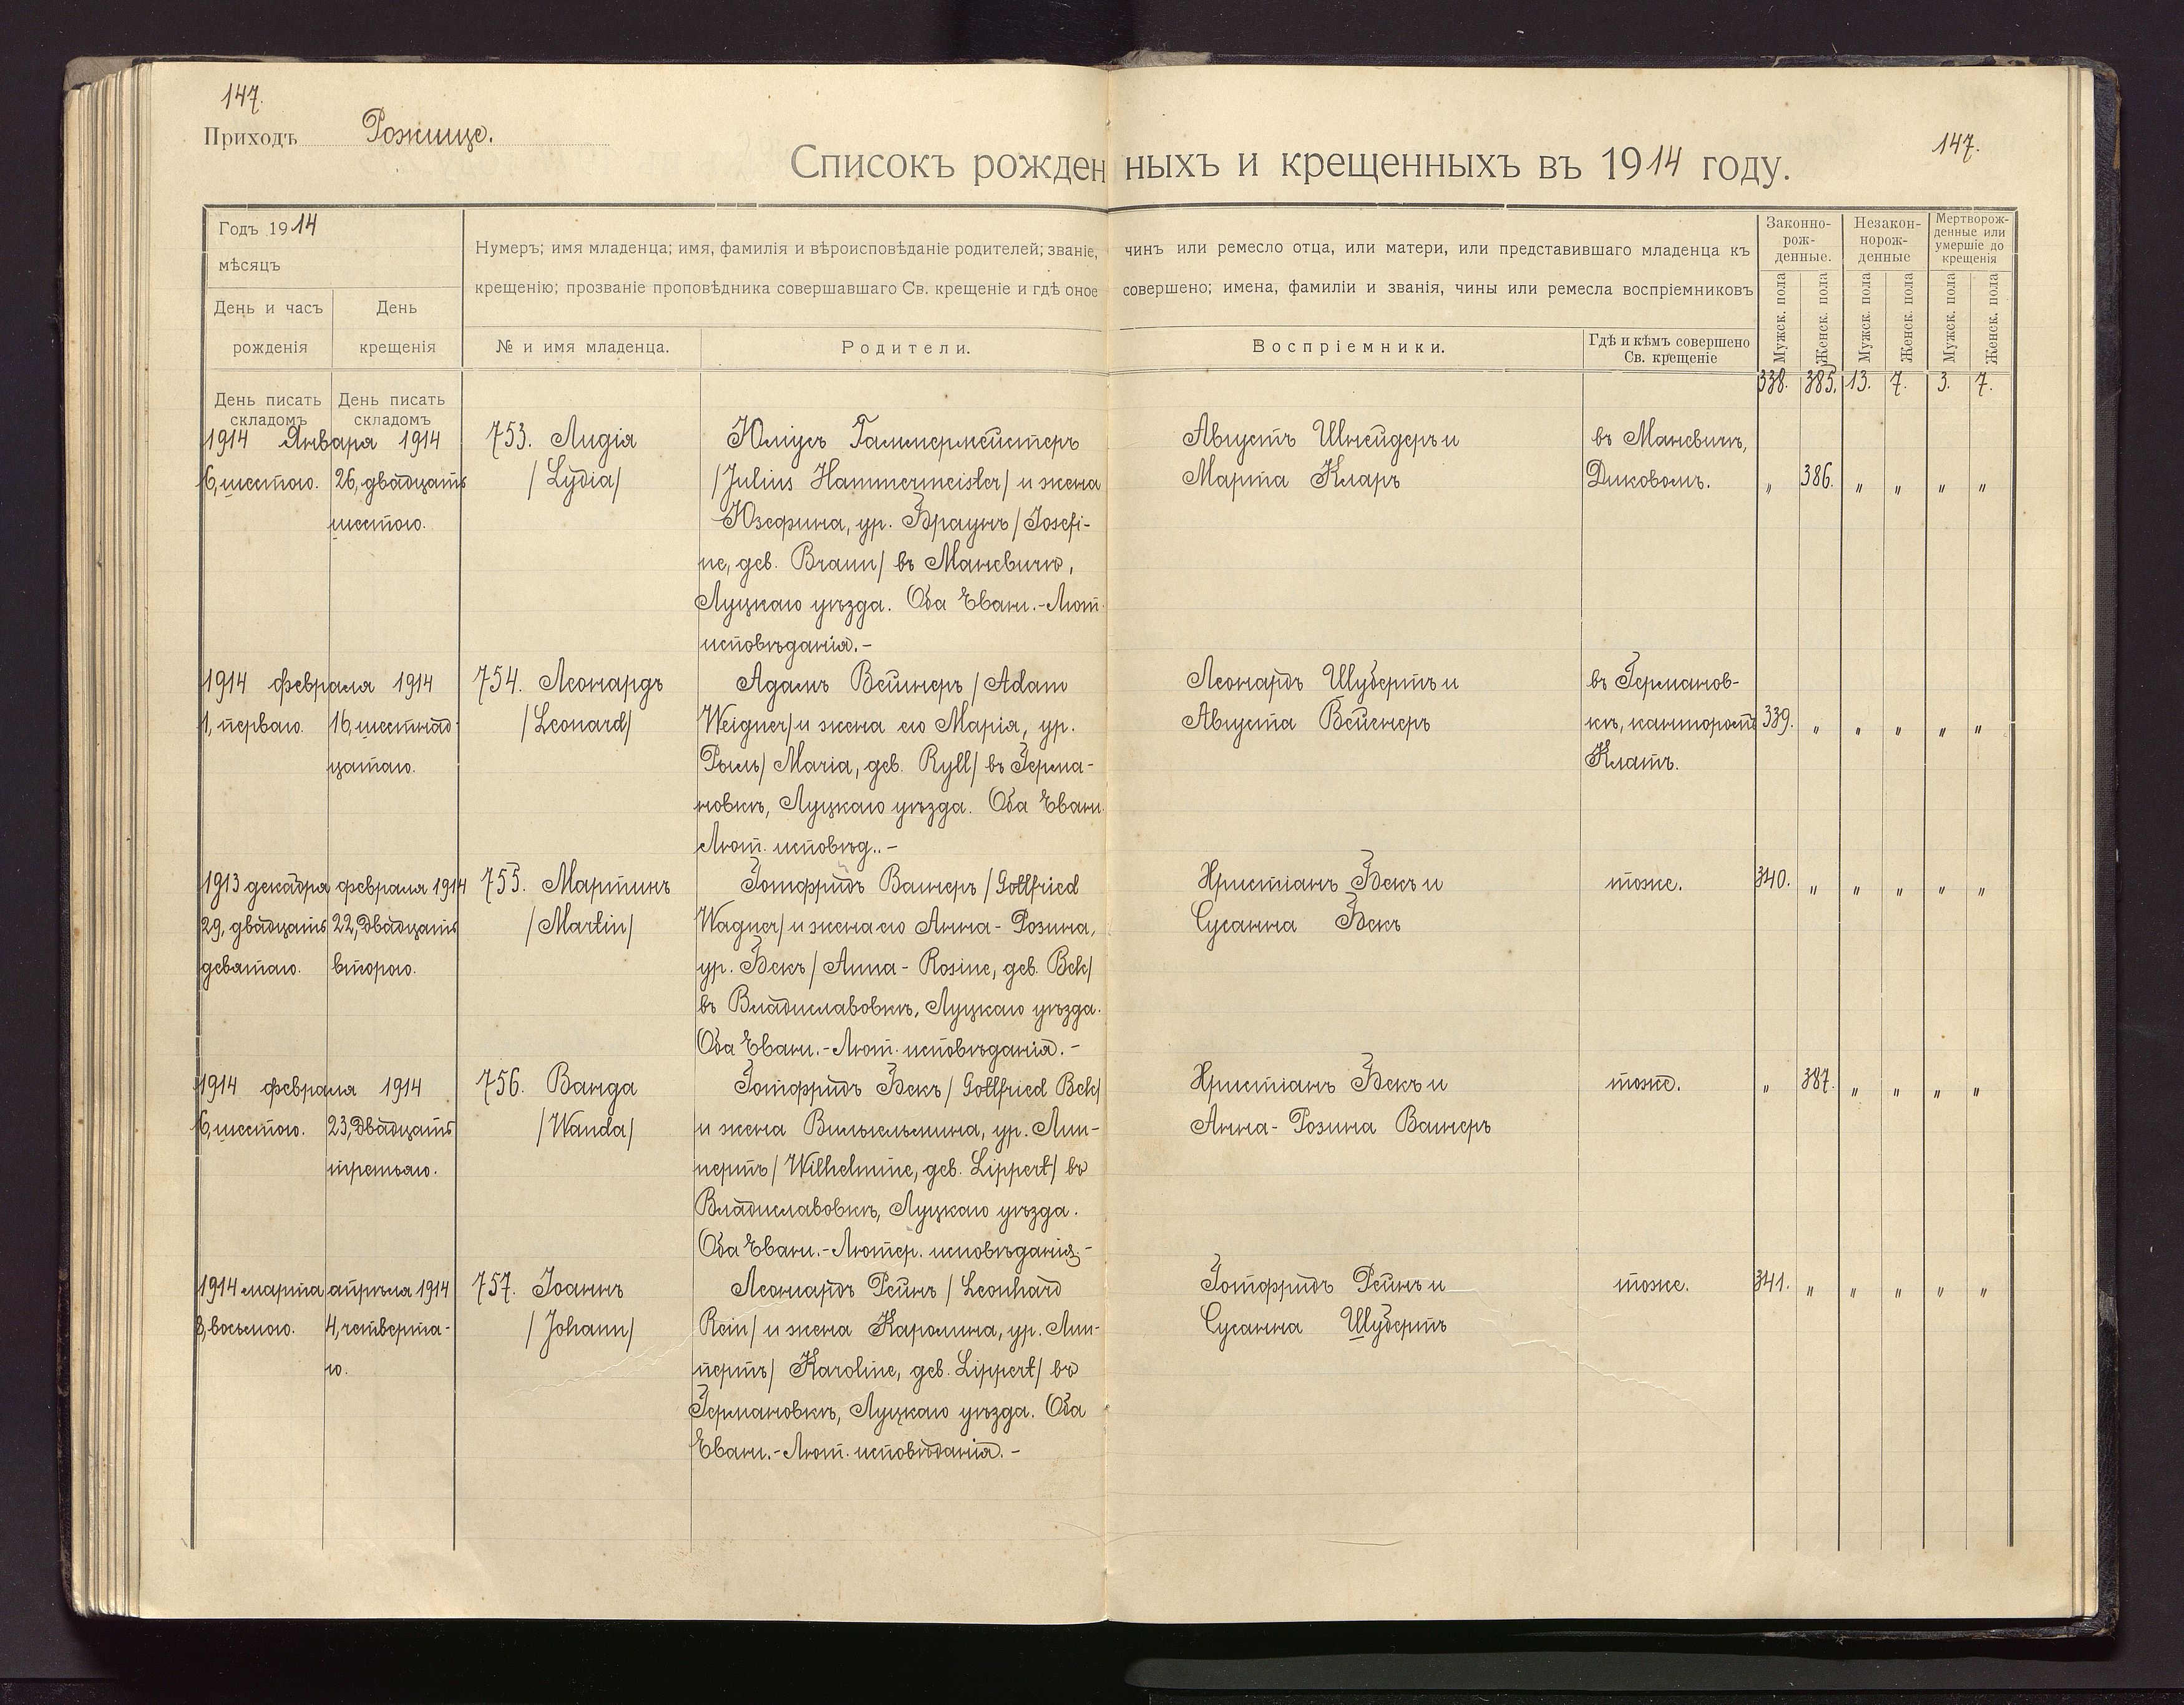 147.
Приходъ Рожище.
147.
Списокъ рожденныхъ и крещенныхъ въ 1914 году.
Годъ 1914
мѣсяцъ
День и часъ рожденія
День крещенія
Нумеръ; имя младенца; имя, фамилія и вѣроисповѣданіе родителей; званіе, чинъ или ремесло отца, или матери, или представившаго младенца къ
крещенію; прозваніе проповѣдника совершавшаго Св. крещеніе и гдѣ оное совершено; имена, фамиліи и званія, чины или ремесла воспріемниковъ
№ и имя младенца.
Родители.
Воспріемники.
Гдѣ и кѣмъ совершено
Св. крещеніе
Законно-
рож-
денные.
Незакон-
норож-
денные
Мертворож-
денные или
умершіе до
крещенія
Мужск. пола
Женск. пола
Мужск. пола
Женск. пола
Мужск. пола
Женск. пола
День писать
складомъ
День писать
складомъ
338. 385. 13. 7. 3. 7.
1914 Января 1914
6, шестого.
26, двадцать
шестого.
753. Лидія
/Lydia/
Юліусъ Гаммермейстеръ
/Julius Hammermeister/ и жена
Юзефина, ур. Браунъ /Josefi-
ne, geb. Braun/ въ Маневичѣ,
Луцкаго уѣзда. Оба Еванг.-Лют.
исповѣданія.-
Августъ Шнейдеръ и
Марта Кларъ
въ Маневичѣ,
Диковомъ.
" 386. " " " "
1914 февраля 1914
1, перваго.
16, шестнад-
цатаго.
754. Леонардъ
/Leonard/
Адамъ Вейгнеръ /Adam
Weigner/ и жена его Марія, ур.
Рыль/ Maria, geb. Ryll/ въ Герма-
новкѣ, Луцкаго уѣзда. Оба Еванг.
Лют. исповѣд..-
Леонардъ Шубертъ и
Августа Вейгнеръ
въ Германов-
кѣ, канторомъ
Клатъ.
339. " " " " "
1913 декабря
29, двадцать
девятаго.
февраля 1914
22, двадцать
второго.
755. Мартинъ
/Martin/
Готфридъ Вагнеръ /Gottfried
Wagner/ и жена его Анна-Розина,
ур. Бекъ/ Anna-Rosine, geb. Bek/
въ Владиславовкѣ, Луцкаго уѣзда.
Оба Еванг.-Лют. исповѣданія.-
Христіанъ Бекъ и
Сусанна Бекъ
тоже.
340. " " " " "
1914 февраля 1914
6, шестого.
23, двадцать
третьяго.
756. Ванда
/Wanda/
Готфридъ Бекъ/ Gottfried Bek/
и жена Вильгельмина, ур. Лип-
пертъ/ Wilhelmine, geb. Lippert/ въ
Владиславовкѣ, Луцкаго уѣзда.
Оба Еванг.-Лютер. исповѣданія.-
Христіанъ Бекъ и
Анна-Розина Вагнеръ
тоже.
" 387. " " " "
1914 марта
8, восьмого.
апрѣля 1914
4, четверта-
го.
757. Іоаннъ
/Johann/
Леонардъ Рейнъ /Leonhard
Rein/ и жена Каролина, ур. Лип-
пертъ/ Karoline, geb. Lippert/ въ
Германовкѣ, Луцкаго уѣзда. Оба
Еванг.-Лют. исповѣданія.-
Готфридъ Рейнъ и
Сусанна Шубертъ
тоже.
341. " " " " "